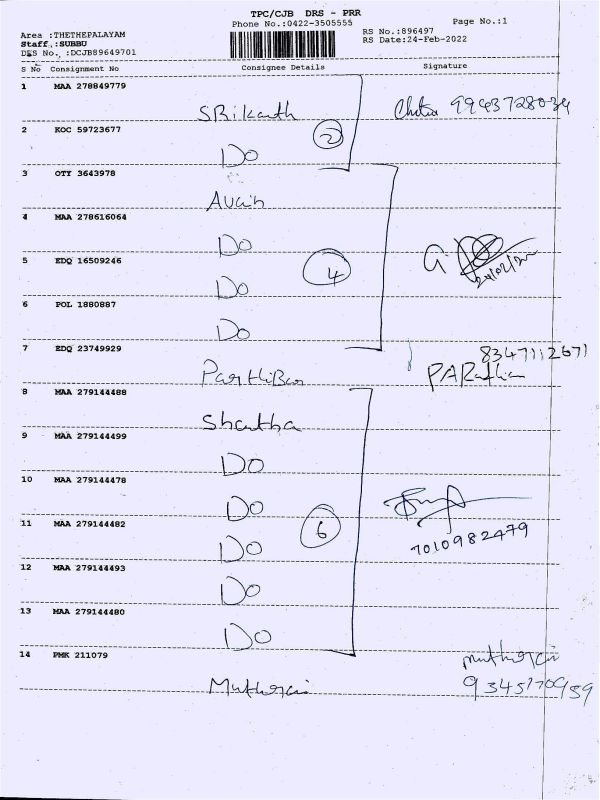 TPC/CJB DRS - PRR
Phone No.:0422-3505555
Page No.:1
Area :THETHEPALAYAM
RS No.:896497
Staff.:SUBBU
RS Date:24-Feb-2022
DRS No. :DCJB89649701
S No Consignment No Consignee Details Signature
1 MAA 278849779
SRikanth Chitra 9943728034
2 KOC 59723677
2
Do
3 OTY 3643978
Avain
4 MAA 278616064
Do
5 EDQ 16509246
4
G. 24/02/22
Do
6 POL 1880887
Do
7 EDQ 23749929
8347112671
ParthiBan
8 MAA 279144488
Shantha
9 MAA 279144499
Do
10 MAA 279144478
Do
11 MAA 279144482
6
7010982479
Do
12 MAA 279144493
Do
13 MAA 279144480
Do
14 PMK 211079
9345770959